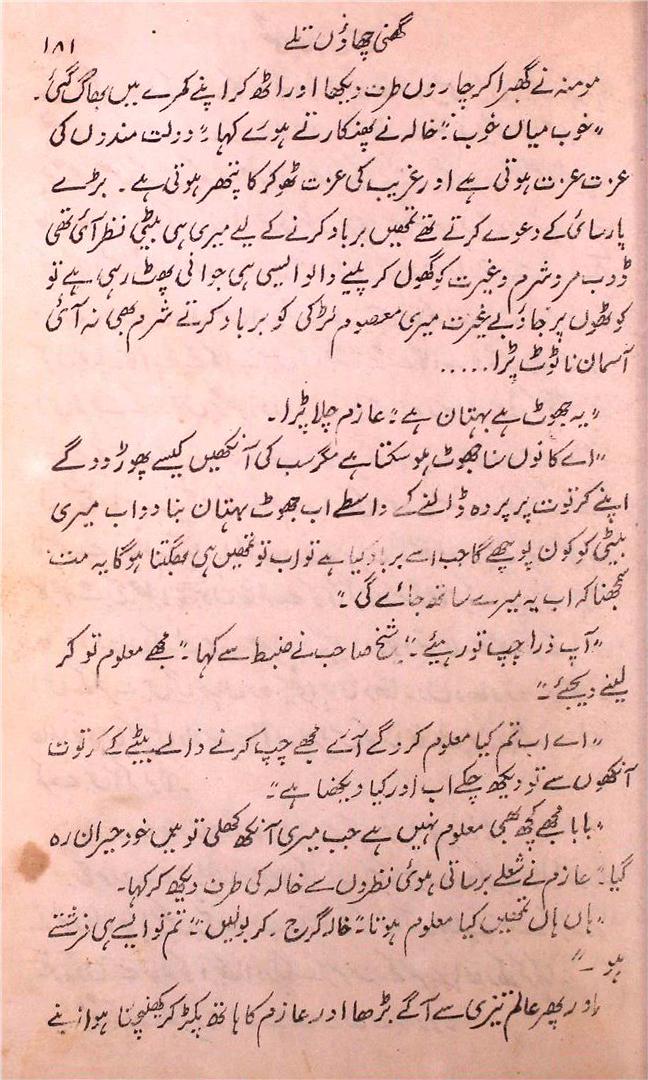 گھنی چھاؤں تلے
۱۸۱
مومنہ نے گھبرا کر چاروں طرف دیکھا اور اٹھ کر اپنے کمرے میں بھاگ گئی۔
"خوب میاں خوب"۔ خالہ نے پھنکارتے ہوئے کہا۔ "دولت مندوں کی
عزت عزت ہوتی ہے اور غریب کی عزت ٹھوکر کا پتھر ہوتی ہے۔ بڑے
پارسائی کے دعوے کرتے تھے تمھیں برباد کرنے کے لیے میری ہی بیٹی نظر آئی تھی
ڈوب مرو شرم و غیرت کو گھول کر پلینے والو ایسی ہی جوانی پھٹ رہی ہے تو
کوٹھوں پر جاؤ بے غیرت میری معصوم لڑکی کو برباد کرتے شرم بھی نہ آئی
آسمان نا ٹوٹ پڑا.....
"یہ جھوٹ ہے بہتان ہے"۔ عازم چلا پڑا۔
"اے کانوں سنا جھوٹ ہو سکتا ہے مگر سب کی آنکھیں کیسے پھوڑ دو گے
اپنے کرتوت پر پردہ ڈالنے کے واسطے اب جھوٹ بہتان بنا دو اب میری
بیٹی کو کون پوچھے گا جب اسے برباد کیا ہے تو اب تو تمھیں ہی بھگتنا ہو گا یہ مت
سمجھنا کہ اب یہ میرے ساتھ جائے گی۔"
"آپ ذرا چپ تو رہیئے۔" شیخ صاحب نے ضبط سے کہا۔ "مجھے معلوم تو کر
لینے دیجئے۔"
"اے اب تم کیا معلوم کرو گے آئے مجھے چپ کرنے والے بیٹے کے کرتوت
آنکھوں سے تو دیکھ چکے اب اور کیا دیکھنا ہے"۔
"بابا مجھے کچھ بھی معلوم نہیں ہے جب میری آنکھ کھلی تو میں خود حیران رہ
گیا"۔ عازم نے شعلے برساتی ہوئی نظروں سے خالہ کی طرف دیکھ کر کہا۔
"ہاں ہاں تمھیں کیا معلوم ہوتا"۔ خالہ گرج کر بولیں"۔ "تم تو ایسے ہی فرشتے
ہو۔"
اور پھر عالم تیزی سے آگے بڑھا اور عازم کا ہاتھ پکڑ کر کھینچتا ہوا اپنے